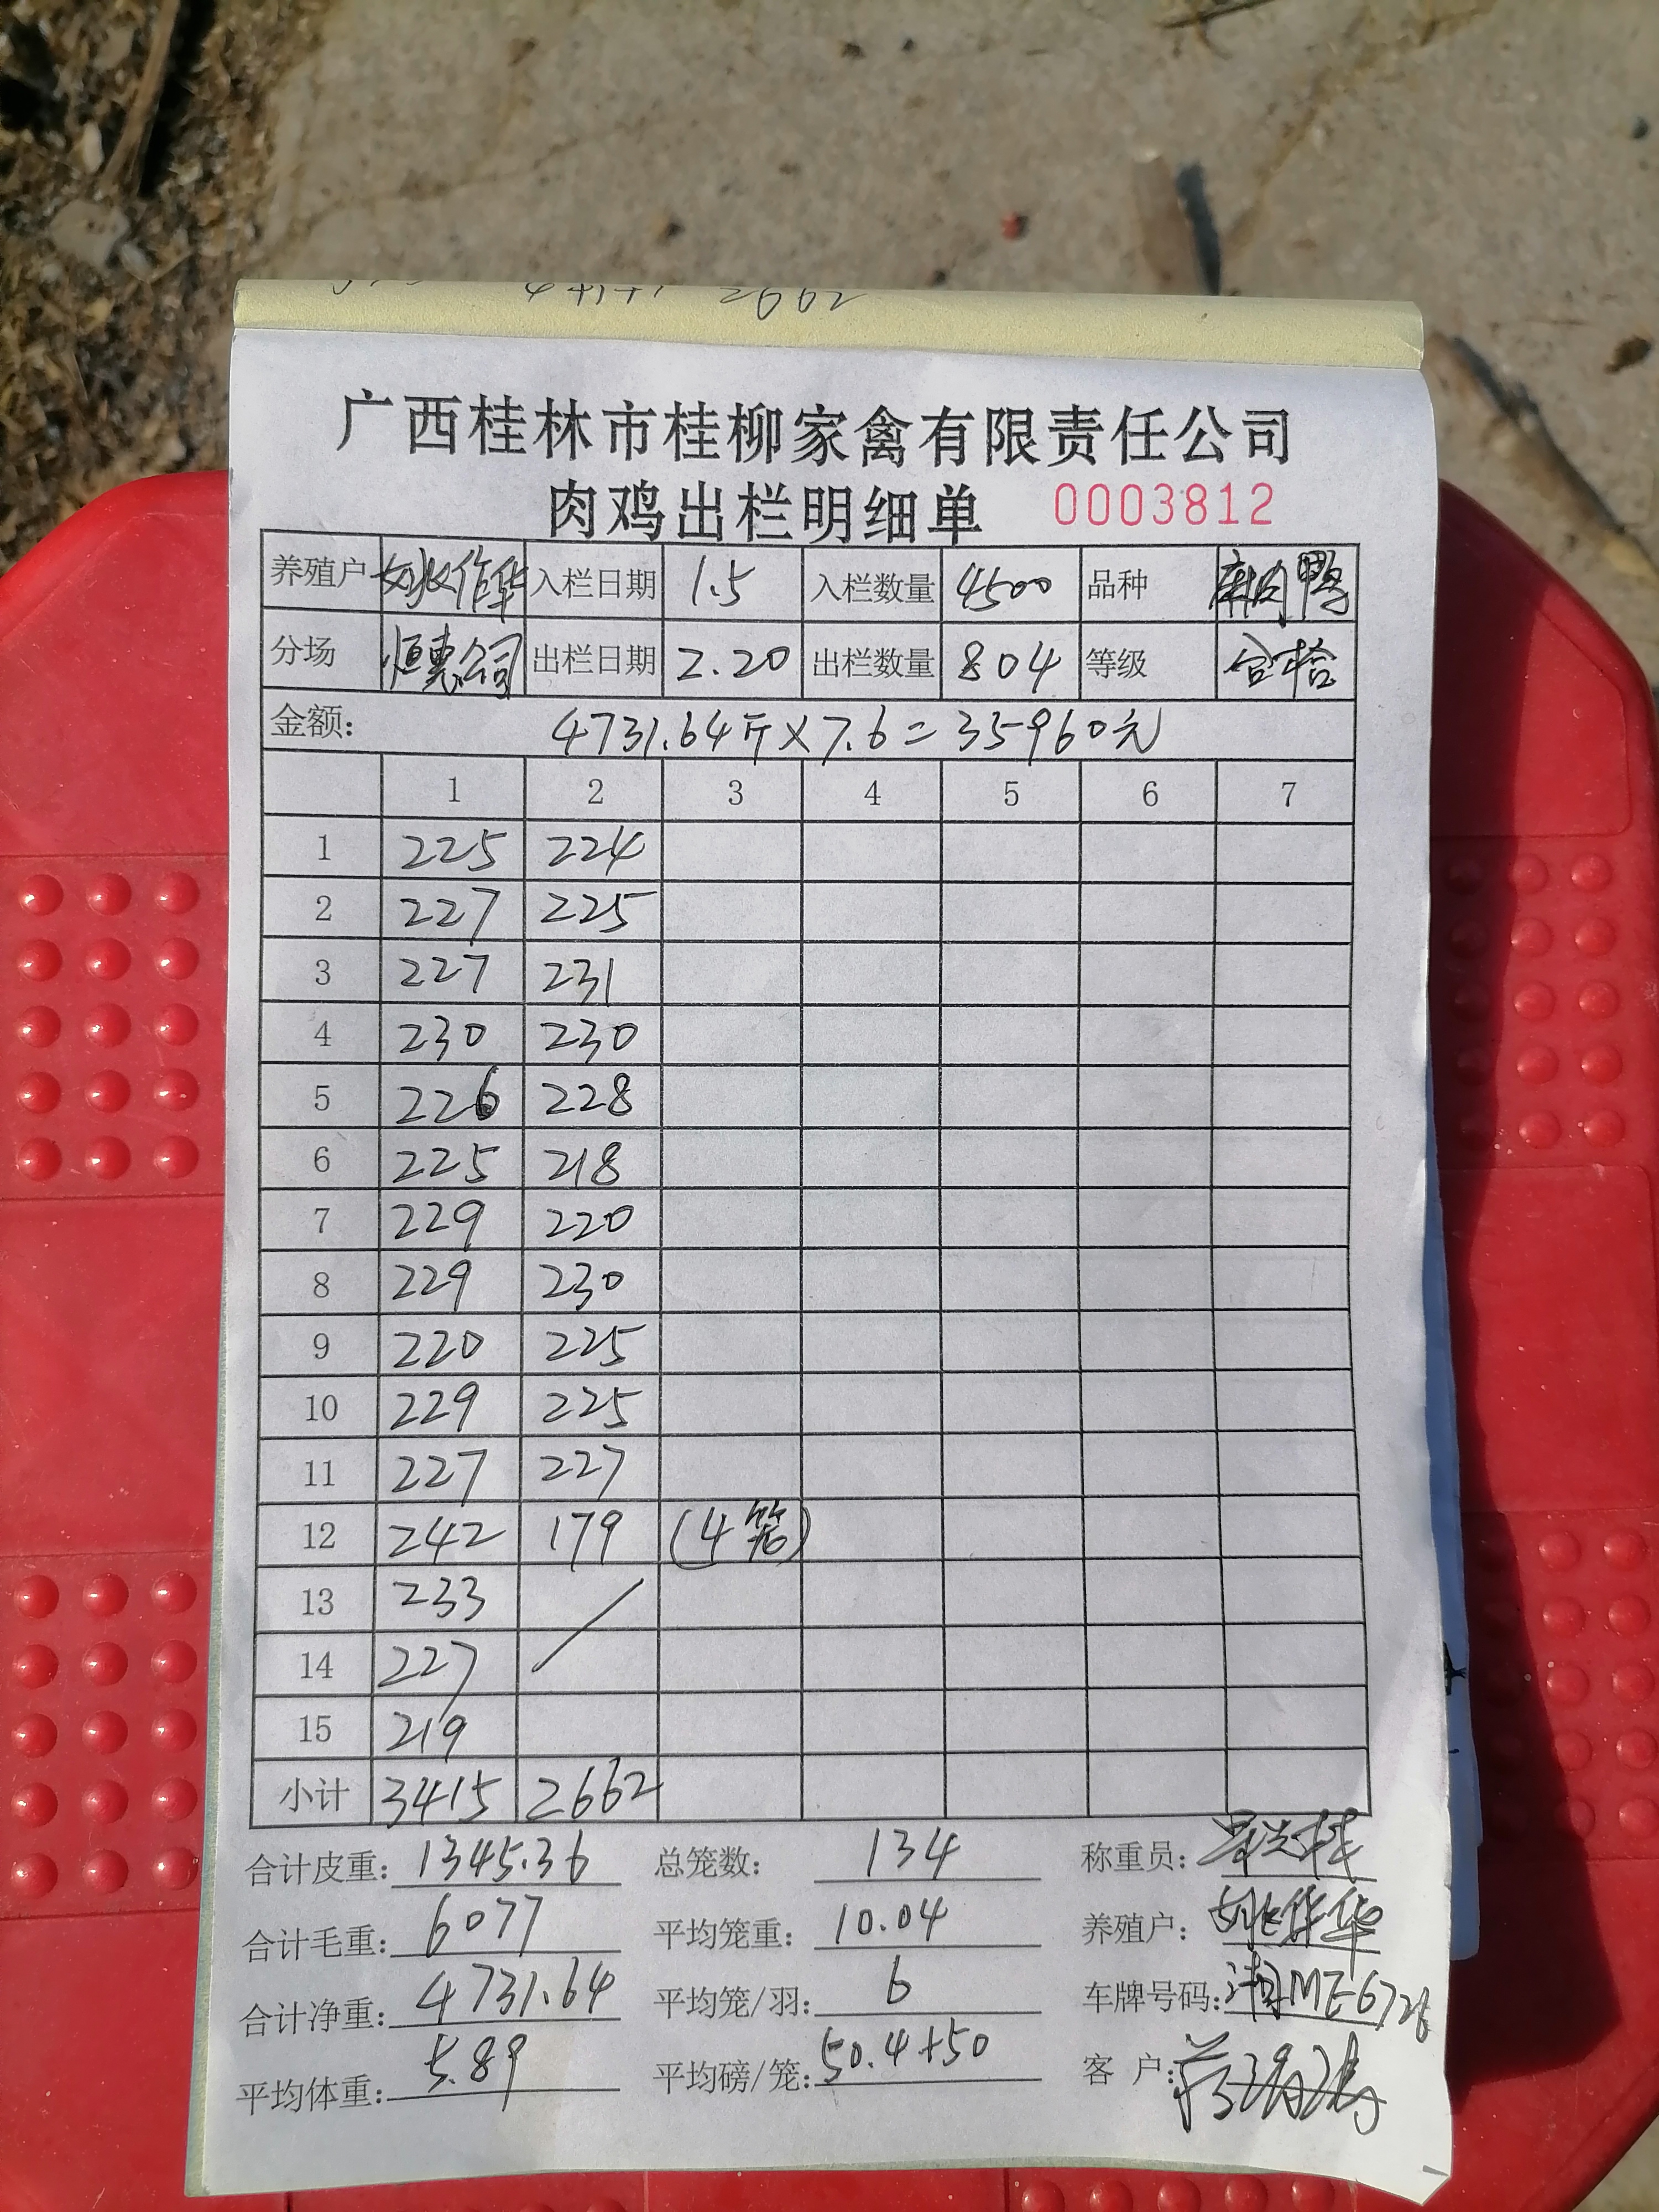 2662
广西桂林市桂柳家禽有限责任公司
肉鸡出栏明细单 0003812
养殖户 姚作华 入栏日期 1.5 入栏数量 4500 品种 鸭
分场 恒惠公司 出栏日期 2.20 出栏数量 804 等级 合格
金额: 4731.64斤×7.6=35960元
1 2 3 4 5 6 7
1 225 224
2 227 225
3 227 231
4 230 230
5 226 228
6 225 218
7 229 220
8 229 230
9 220 225
10 229 225
11 227 227
12 242 179 (4笼)
13 233
14 227
15 219
小计 3415 2662
合计皮重: 1345.36 总笼数: 134 称重员:
合计毛重: 6077 平均笼重: 10.04 养殖户: 姚作华
合计净重: 4731.64 平均笼/羽: 6 车牌号码: 湘ME6728
平均体重: 5.89 平均磅/笼: 50.4+50 客户: